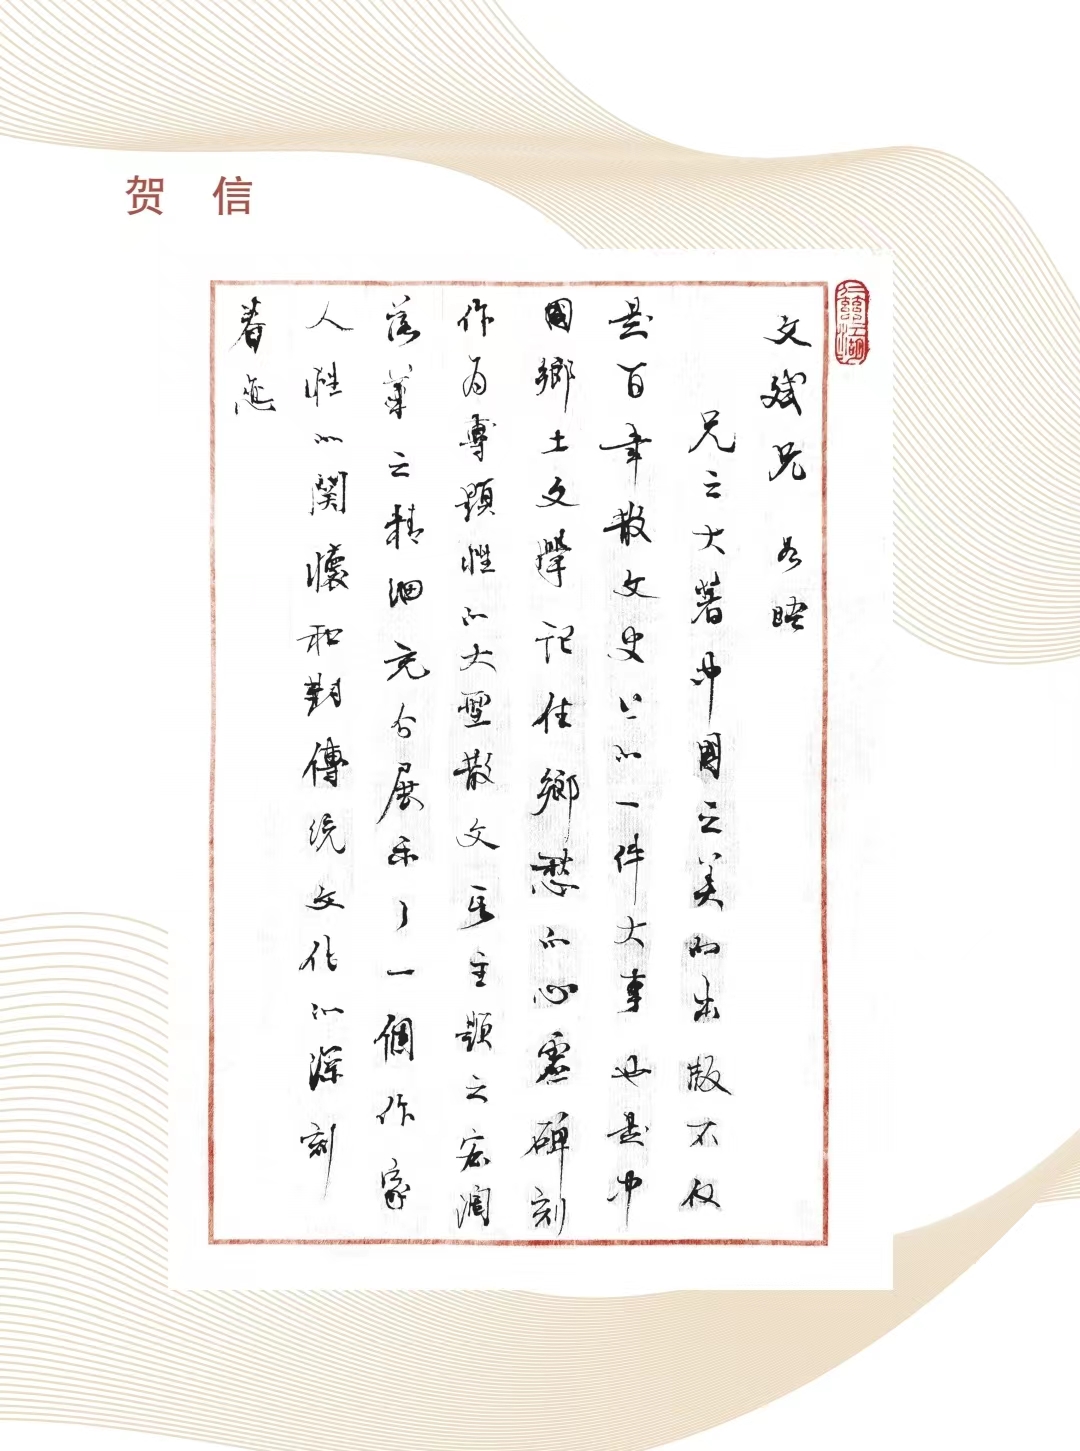 贺 信
文斌兄 如晤
兄之大著中国之美的出版不仅
是百年散文史上的一件大事也是中
國鄉土文學記住鄉愁的心靈碑刻
作为專題性的大型散文其主題之宏阔
落筆之精细充分展示了一個作家
人性的関懷和對傳统文化的深刻
眷恋